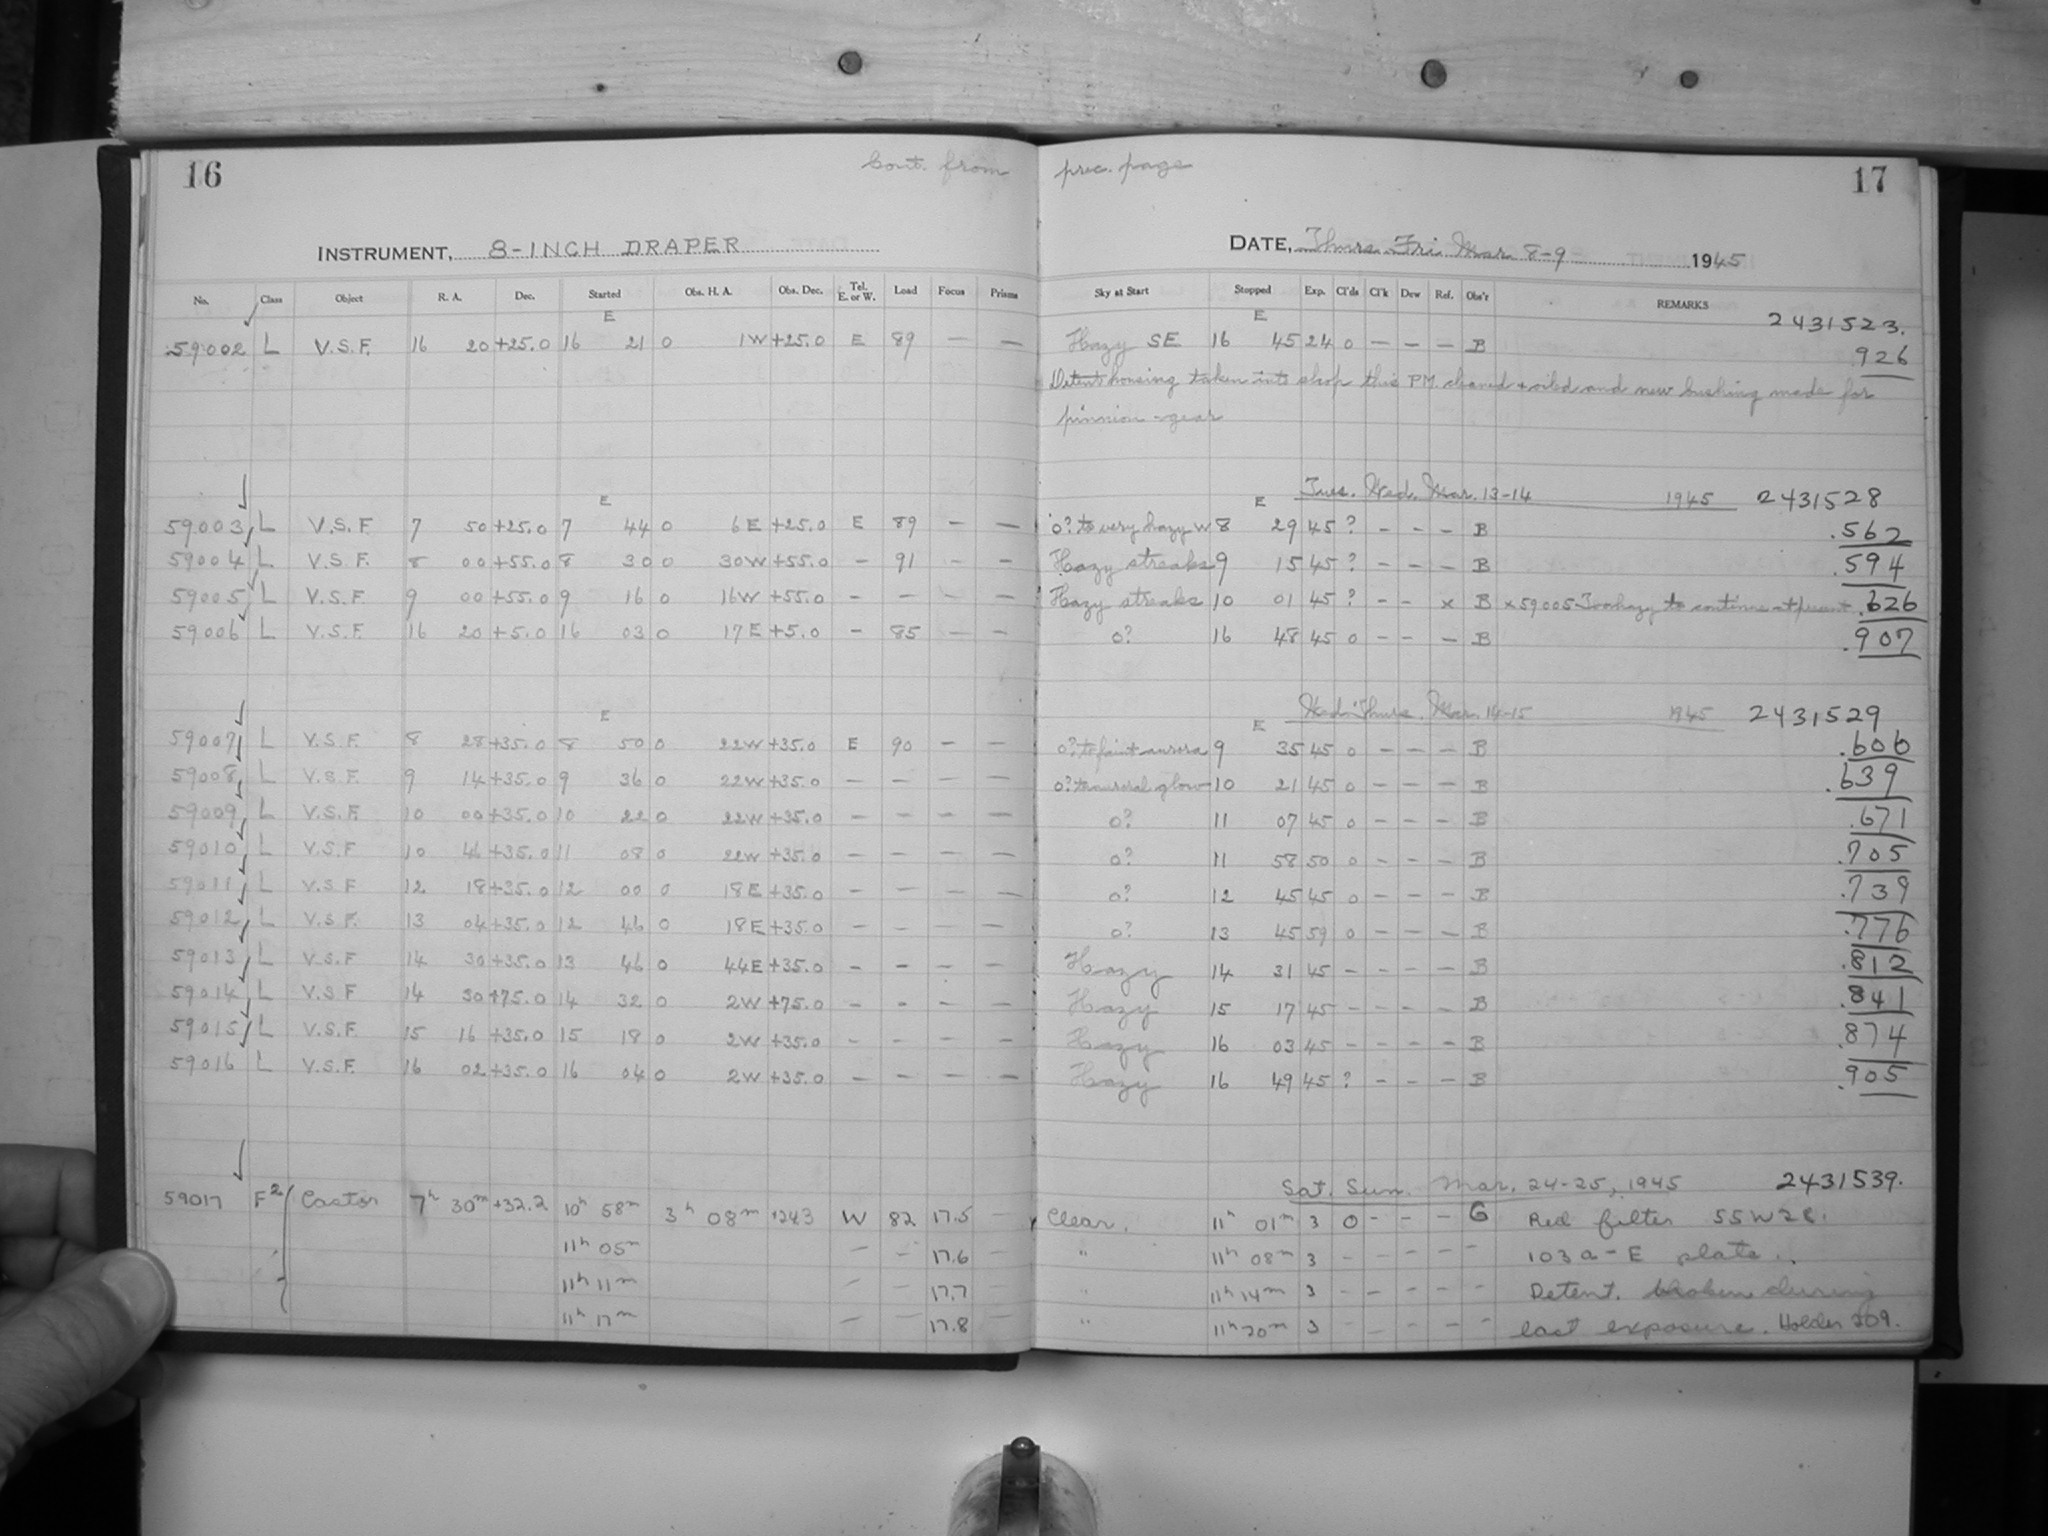 16
Cont. from prec. page
17
INSTRUMENT, 8-INCH DRAPER
DATE, Thurs. Fri Mar. 8-9 1945
No. Class Object R. A. Dec. Started Obs. H. A. Obs. Dec. Tel. E. or W. Load Focus Prisms Sky at Start Stopped Exp. Cl'ds Cl'k Dew Ref. Obs'r REMARKS
E E 2431523.
59002 L V.S.F. 16 20 +25.0 16 21 0 1W +25.0 E 89 — — Hazy SE 16 45 24 0 — — — B .926
Detent housing taken into shop this PM. cleaned + oiled and new bushing made for
pinnion-gear
E E Tues. Wed. Mar. 13-14 1945 2431528
59003 L V.S.F. 7 50 +25.0 7 44 0 6E +25.0 E 89 — — 0? to very hazy W. 8 29 45 ? — — — B .562
59004 L V.S.F. 8 00 +55.0 8 30 0 30W +55.0 — 91 — — Hazy streaks 9 15 45 ? — — — B .594
59005 L V.S.F. 9 00 +55.0 9 16 0 16W +55.0 — — — — Hazy streaks 10 01 45 ? — — x B x 59005 Too hazy to continue at present .626
59006 L V.S.F. 16 20 +5.0 16 03 0 17E +5.0 — 85 — — 0? 16 48 45 0 — — — B .907
E E Wed. Thurs. Mar. 14-15 1945 2431529
59007 L V.S.F. 8 28 +35.0 8 50 0 22W +35.0 E 90 — — 0? to faint aurora 9 35 45 0 — — — B .606
59008 L V.S.F. 9 14 +35.0 9 36 0 22W +35.0 — — — — 0? to auroral glow 10 21 45 0 — — — B .639
59009 L V.S.F. 10 00 +35.0 10 22 0 22W +35.0 — — — — 0? 11 07 45 0 — — — B .671
59010 L V.S.F. 10 46 +35.0 11 08 0 22W +35.0 — — — — 0? 11 58 50 0 — — — B .705
59011 L V.S.F 12 18 +35.0 12 00 0 18E +35.0 — — — — 0? 12 45 45 0 — — — B .739
59012 L V.S.F. 13 04 +35.0 12 46 0 18E +35.0 — — — — 0? 13 45 59 0 — — — B .776
59013 L V.S.F 14 30 +35.0 13 46 0 44E +35.0 — — — — Hazy 14 31 45 — — — — B .812
59014 L V.S.F 14 30 +75.0 14 32 0 2W +75.0 — — — — Hazy 15 17 45 — — — — B .841
59015 L V.S.F. 15 16 +35.0 15 18 0 2W +35.0 — — — — Hazy 16 03 45 — — — — B .874
59016 L V.S.F. 16 02 +35.0 16 04 0 2W +35.0 — — — — Hazy 16 49 45 ? — — — B .905
Sat. Sun. Mar. 24-25, 1945 2431539.
59017 F2 Castor 7h 30m +32.2 10h 58m 3h 08m W 82 17.5 — Clear. 11h 01m 3 0 — — — G Red filter
11h 05m — — 17.6 — " 11h 08m 3 — — — — — 103a-E plate.
11h 11m — — 17.7 — " 11h 14m 3 — — — — — Detent. broken during
11h 17m — — 17.8 — " 11h 20m 3 — — — — — last exposure. Holder 209.